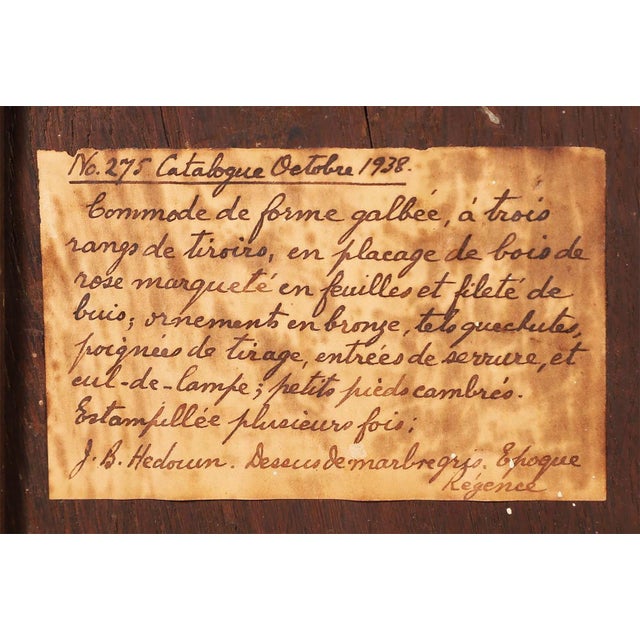 No. 275 Catalogue Octobre 1938.
Commode de forme galbée, à trois
rangs de tiroirs, en placage de bois de
rose marqueté en feuilles et fileté de
buis; ornements en bronze, tels que chutes,
poignées de tirage, entrées de serrure, et
cul-de-lampe; petits pieds cambrés.
Estampillée plusieurs fois;
J. B. Hedouin. Dessus de marbre gris. Epoque
Régence